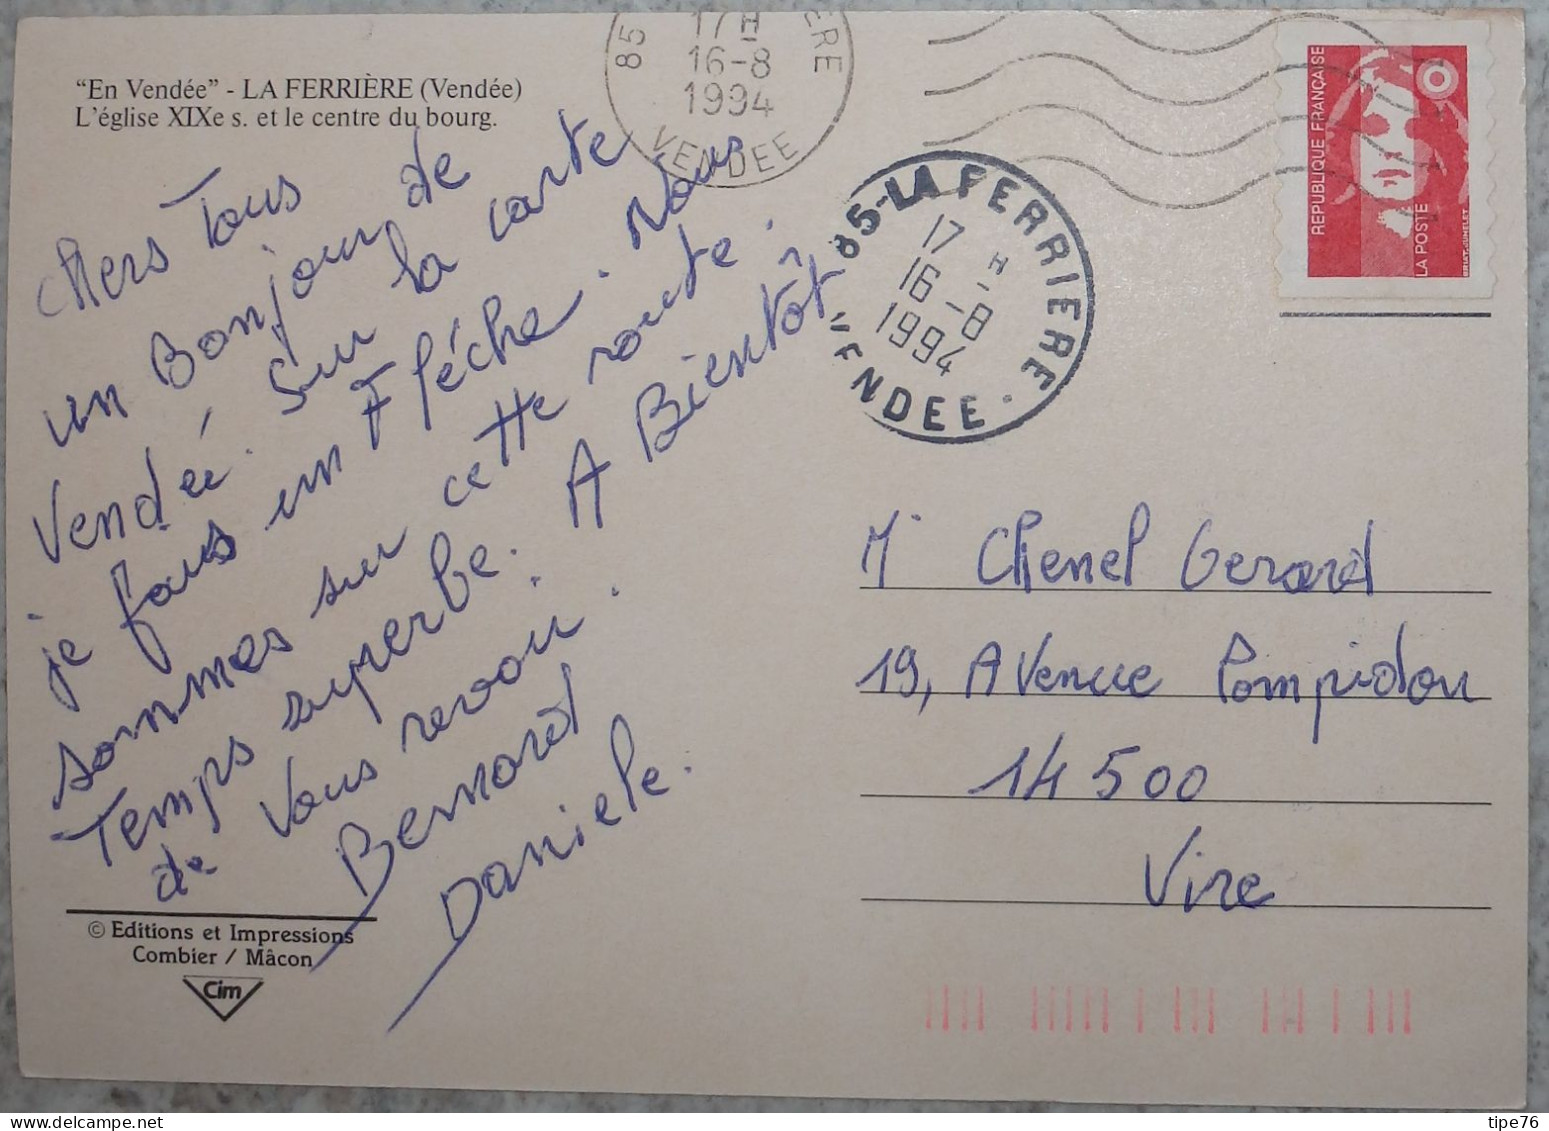 "En Vendée" - LA FERRIÈRE (Vendée)
L'église XIXe s. et le centre du bourg.
Chers Tous
un Bonjour de
Vendée. Sur la carte
je fais un Fléche. Nous
sommes sur cette route.
Temps superbe. A Bientôt
de Vous revoir.
Bernard
Daniele.
© Editions et Impressions
Combier / Mâcon
Cim
85 ERE
17 H
16-8
1994
VENDEE
85-LA FERRIERE
17 H
16-8
1994
VENDEE
REPUBLIQUE FRANÇAISE
LA POSTE
Mr Chenel Gerard
19, Avenue Pompidou
14 500
Vire
tipe76